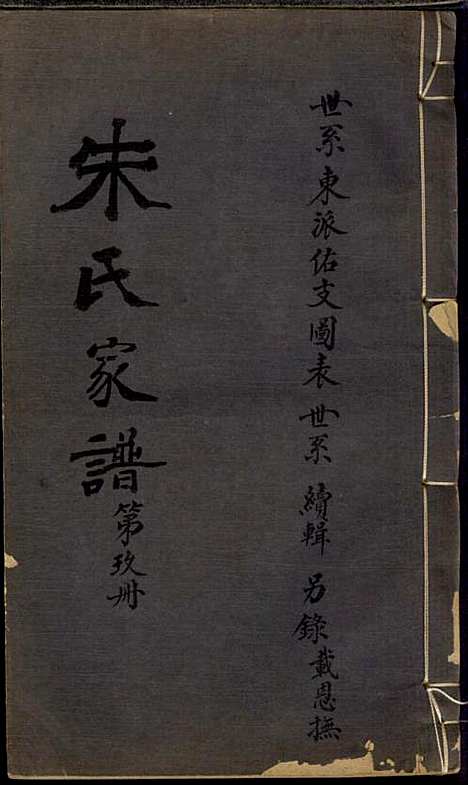 世系東派佑支圖表世系 續輯 另錄載恩撫
朱氏家譜
第玖冊